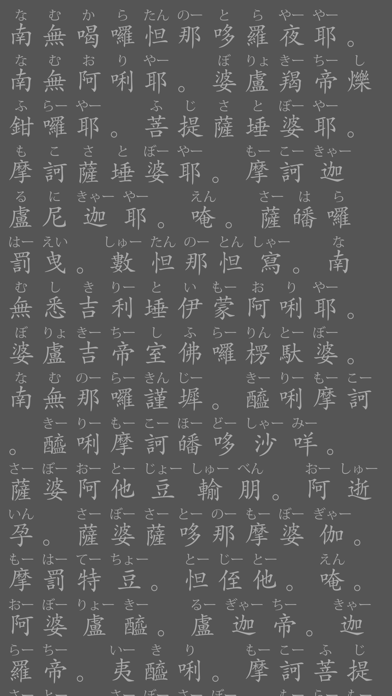 な む か ら たん のー と ら やー やー
南無喝囉怛那哆羅夜耶。
な む お り やー ぼ りょ きー ちー し
南無阿唎耶。婆盧羯帝爍
ふ らー やー ふ じ さ と ぼー やー
鉗囉耶。菩提薩埵婆耶。
も こ さ と ぼー やー もー こー きゃー
摩訶薩埵婆耶。摩訶迦
る に きゃー やー えん さー は ら
盧尼迦耶。唵。薩皤囉
はー えい しゅー たん のー とん しゃー な
罰曳。數怛那怛寫。南
む しー き り と い もー お り やー
無悉吉利埵伊蒙阿唎耶。
ぼ りょ きー ちー し ふ らー りん とー ぼー
婆盧吉帝室佛囉楞馱婆。
な む のー らー きん じー きー りー もー こー
南無那囉謹墀。醯唎摩訶
きー りー もー こー ほー どー しゃー みー
。醯唎摩訶皤哆沙咩。
さー ぼー おー とー じょー しゅー べん おー しゅー
薩婆阿他豆輸朋。阿逝
いん さー ぼー さー とー のー もー ぼー ぎゃー
孕。薩婆薩哆那摩婆伽。
もー はー てー ちょー とー じー とー えん
摩罰特豆。怛侄他。唵。
おー ぼー りょー きー るー ぎゃー ちー きゃー
阿婆盧醯。盧迦帝。迦
らー ちー いー きー り もー こー ふ じ
羅帝。夷醯唎。摩訶菩提